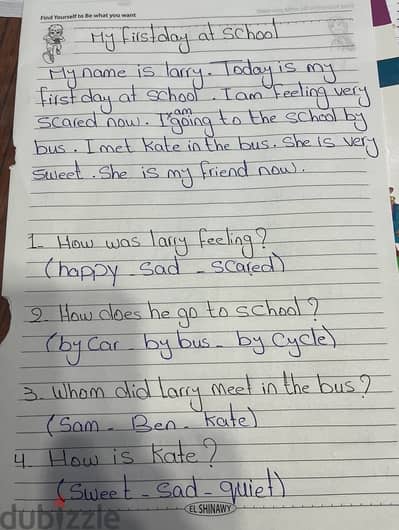 Find Yourself to Be what you want
My first day at school
My name is larry. Today is my
first day at school. I am feeling very
am
scared now. I going to the school by
bus. I met Kate in the bus. She is very
Sweet. She is my friend now.
1- How was larry feeling?
(happy - Sad - scared)
2. How does he go to school?
(by Car - by bus - by cycle)
3- Whom did larry meet in the bus?
(Sam - Ben - Kate)
4- How is Kate?
(Sweet - Sad - quiet)
EL SHINAWY
dubizzle